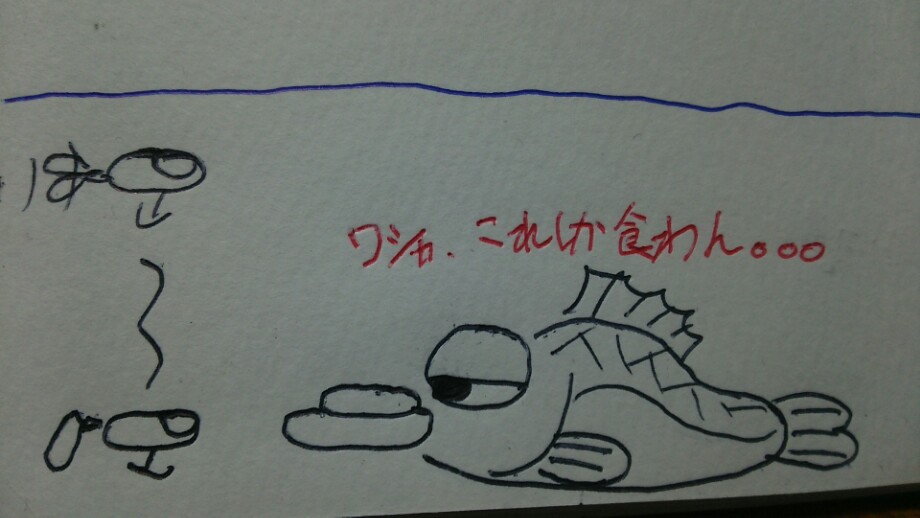 ワシャ、これしか食わん。。。